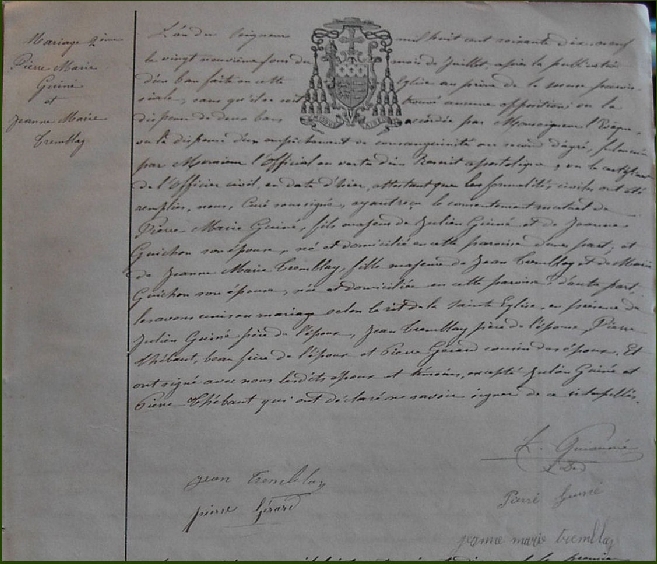 Mariage
Pierre Marie
Guiné
et
Jeanne Marie
Tremblay
L'an du Seigneur mil huit cent soixante dix-neuf
le vingt neuvième jour du mois de Juillet, après la publication
d'un ban faite en cette Eglise au prône de la messe
sans qu'il se soit aucune opposition ou la
dispense de deux bans accordée par Monseigneur l'Evêque,
vu la dispense d'un empêchement de consanguinité au second degré,
par Monsieur l'Official en vertu d'un apostolique, vu le certificat
de l'Officier civil, en date d'hier, attestant que les formalités civiles ont été
remplies, nous, Curé soussigné, ayant reçu le consentement mutuel de
Pierre Marie Guiné, fils majeur de Julien Guiné et de Jeanne
Guichon son épouse, né et domicilié en cette paroisse d'une part, et
de Jeanne Marie Tremblay, fille majeure de Jean Tremblay et de Marie
Guichon son épouse, née et domiciliée en cette paroisse d'autre part,
les avons unis en mariage selon le rit de la Sainte Eglise, en présence de
Julien Guiné père de l'époux, Jean Tremblay père de l'épouse, Pierre
Thébaut, beau frère de l'époux et Pierre Gérard cousin des époux. Et
ont signé avec nous lesdits époux et témoins, excepté Julien Guiné et
Pierre Thébaut qui ont déclaré ne savoir signer de ce interpellés.
jean Tremblay
pierre Gérard
jeanne marie tremblay